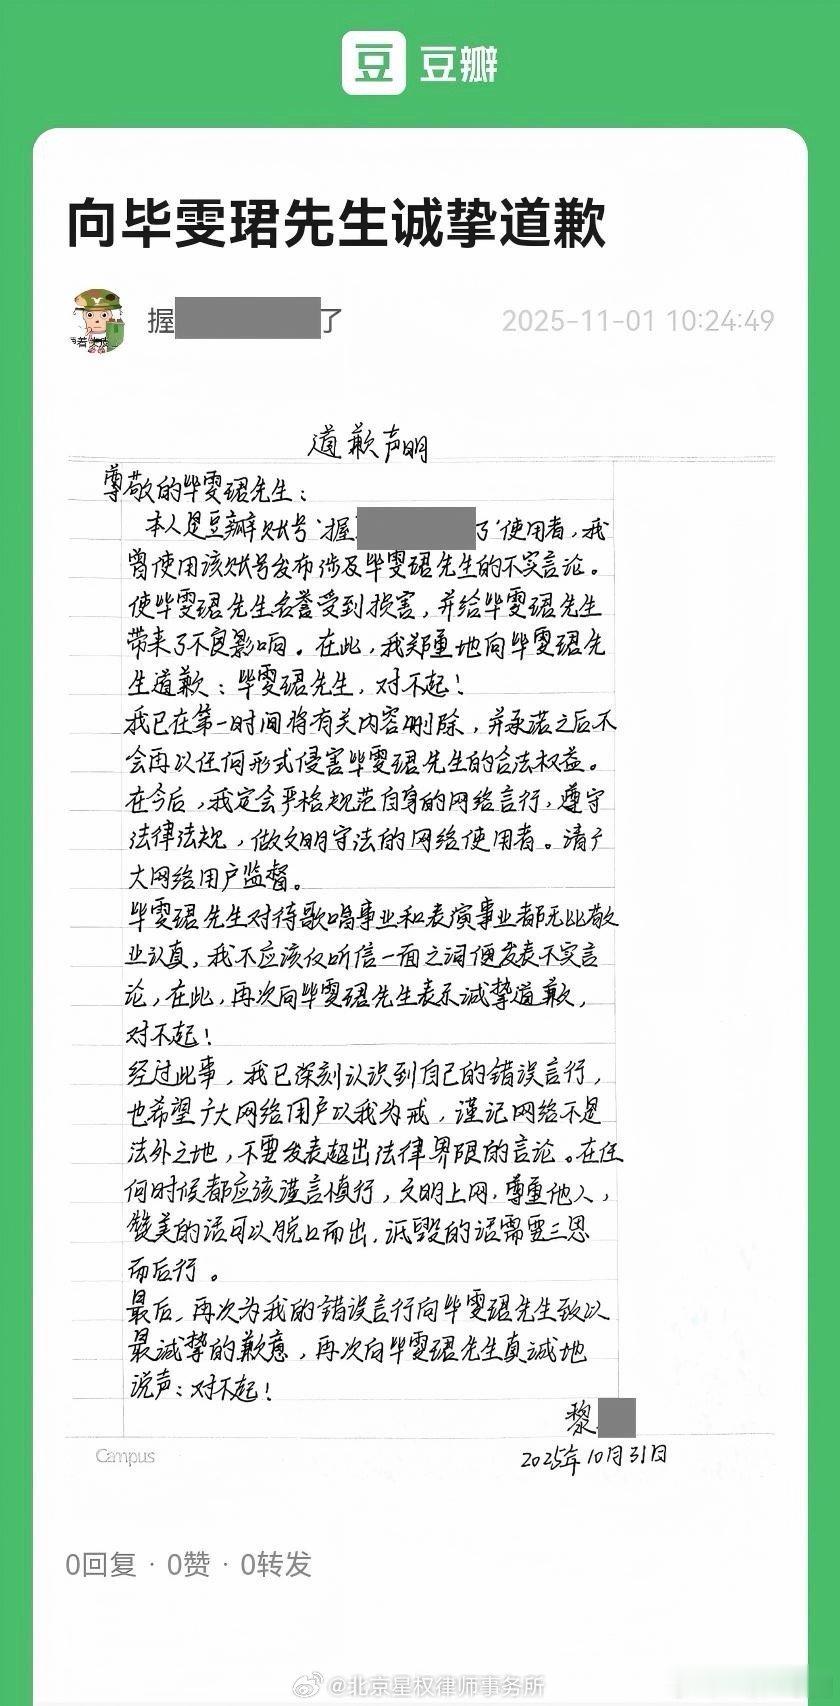 豆 豆瓣
向毕雯珺先生诚挚道歉
握 了
2025-11-01 10:24:49
道歉声明
尊敬的毕雯珺先生：
本人是豆瓣账号‘握 了’使用者，我
曾使用该账号发布涉及毕雯珺先生的不实言论。
使毕雯珺先生名誉受到损害，并给毕雯珺先生
带来了不良影响。在此，我郑重地向毕雯珺先
生道歉：毕雯珺先生，对不起！
我已在第一时间将有关内容删除，并承诺之后不
会再以任何形式侵害毕雯珺先生的合法权益。
在今后，我定会严格规范自身的网络言行，遵守
法律法规，做文明守法的网络使用者。请广
大网络用户监督。
毕雯珺先生对待歌唱事业和表演事业都无比敬
业认真，我不应该仅听信一面之词便发表不实言
论，在此，再次向毕雯珺先生表示诚挚道歉，
对不起！
经过此事，我已深刻认识到自己的错误言行，
也希望广大网络用户以我为戒，谨记网络不是
法外之地，不要发表超出法律界限的言论。在任
何时候都应该谨言慎行，文明上网，尊重他人，
赞美的话可以脱口而出，诋毁的话需要三思
而后行。
最后，再次为我的错误言行向毕雯珺先生致以
最诚挚的歉意，再次向毕雯珺先生真诚地
说声：对不起！
黎
2025年10月31日
Campus
0回复 · 0赞 · 0转发
@北京星权律师事务所